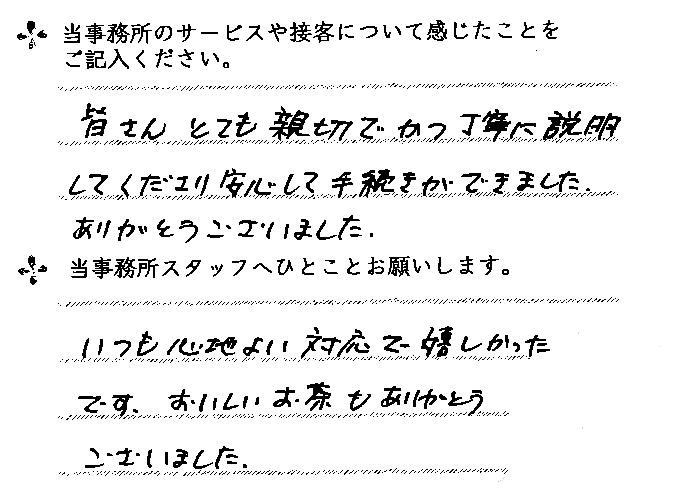 当事務所のサービスや接客について感じたことを
ご記入ください。
皆さんとても親切でかつ丁寧に説明
してくださり安心して手続きができました.
ありがとうございました.
当事務所スタッフへひとことお願いします。
いつも心地よい対応で嬉しかった
です. おいしいお茶もありがとう
ございました.